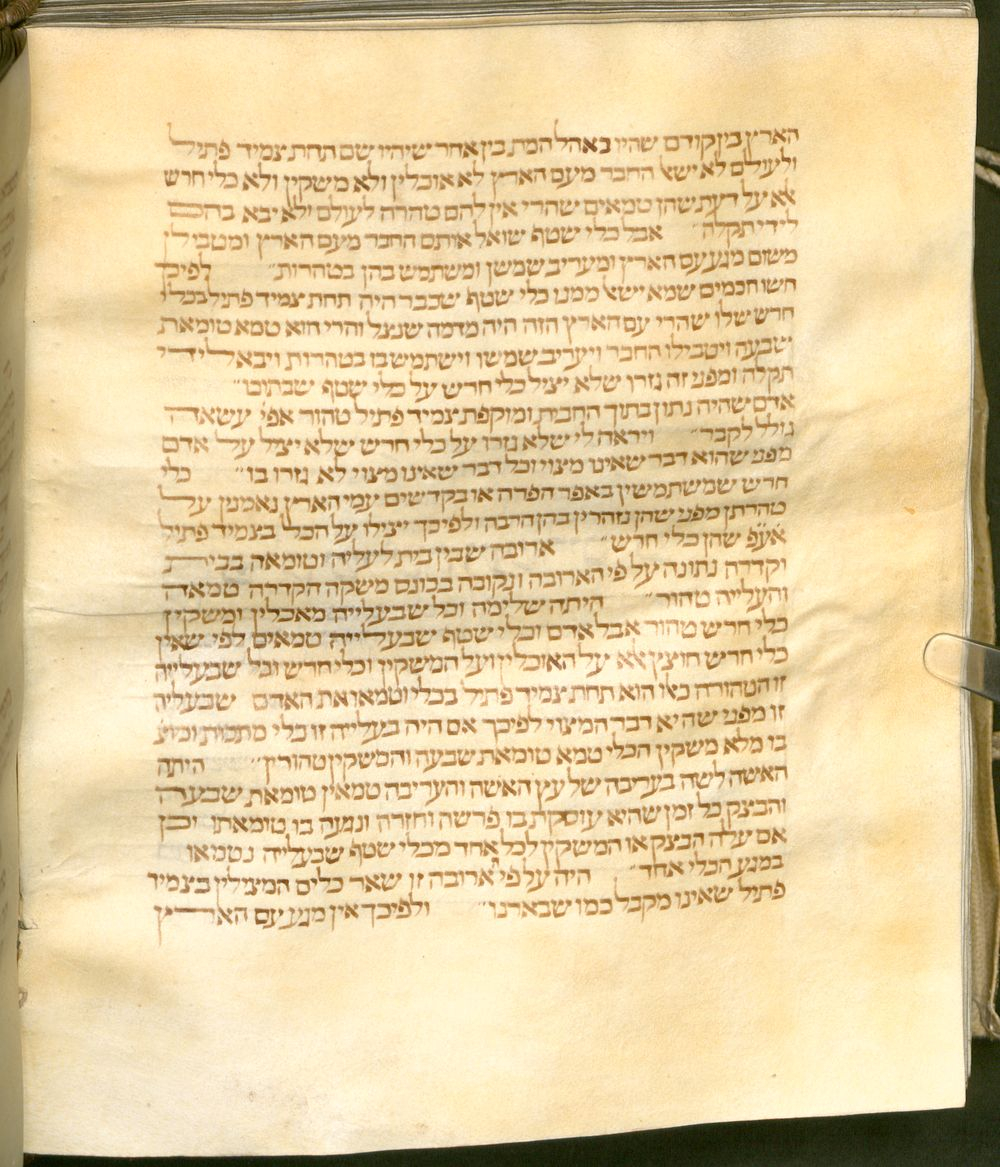 הארץ בין קודם שהיו באהל המת בין אחר שיהיו שם תחת צמיד פתיל
ולעולם לא ישא החבר מעם הארץ לא אוכלין ולא משקין ולא כלי חרש
אלא על דעת שהן טמאים שהרי אין להם טהרה לעולם ולא יבא בהם
לידי תקלה׳׳ אבל כלי שטף שואל אותם החבר מעם הארץ ומטבילן
משום מגע עם הארץ ומעריב שמשן ומשתמש בהן בטהרות׳׳ לפיכך
חשו חכמים שמא ישא ממנו כלי שטף שכבר היה תחת צמיד פתיל בכלי
חרש שלו שהרי עם הארץ הזה היה מדמה שנצל והרי הוא טמא טומאת
שבעה ויטבילו החבר ויעריב שמשו וישתמש בו בטהרות ויבא לידי
תקלה ומפני זה גזרו שלא יציל כלי חרש על כלי שטף שבתוכו׳׳
אדם שהיה נתון בתוך החבית ומוקפת צמיד פתיל טהור אפי׳ עשאה
גולל לקבר׳׳ ויראה לי שלא גזרו על כלי חרש שלא יציל על אדם
מפני שהוא דבר שאינו מצוי וכל דבר שאינו מצוי לא גזרו בו׳׳ כלי
חרש שמשתמשין באפר הפרה או בקדשים עמי הארץ נאמנין על
טהרתן מפני שהן נזהרין בהן הרבה ולפיכך יצילו על הכל בצמיד פתיל
אע״פ שהן כלי חרש׳׳ ארובה שבין בית לעליה וטומאה בבית
וקדרה נתונה על פי הארובה ונקובה בכונס משקה הקדרה טמאה
והעלייה טהור׳׳ היתה שלימה וכל שבעלייה מאכלין ומשקין
כלי חרש טהור אבל אדם וכלי שטף שבעלייה טמאים לפי שאין
כלי חרש חוצץ אלא על האוכלין ועל המשקין וכלי חרש וכל שבעלייה
זו הטהורה כאלו הוא תחת צמיד פתיל בכלי וטמאו את האדם שבעליה
זו מפני שהיא דבר המצוי לפיכך אם היה בעלייה זו כלי מתכות וכיוצ
בו מלא משקין הכלי טמא טומאת שבעה והמשקין טהורין׳׳ היתה
האשה לשה בעריבה של עץ האשה והעריבה טמאין טומאת שבעה
והבצק כל זמן שהיא עוסקת בו פרשה וחזרה ונגעה בו טומאתו וכן
אם עלה הבצק או המשקין לכל אחד מכלי שטף שבעליה נטמאו
במגע הכלי אחד׳׳ היה על פי ארובה זו שאר כלים המצילין בצמיד
פתיל שאינו מקבל כמו שבארנו׳׳ ולפיכך אין מגע עם הארץ